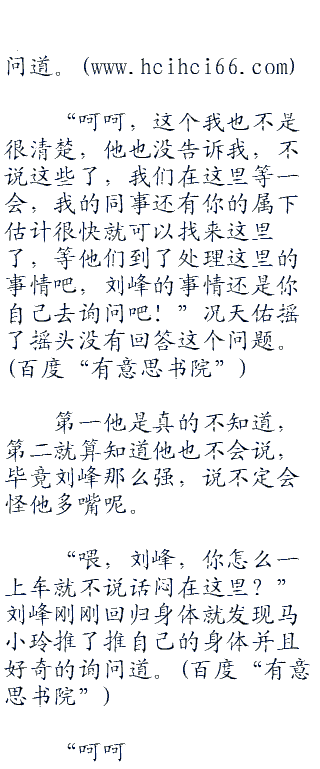 问道。(www.hcihci66.com)
“呵呵，这个我也不是
很清楚，他也没告诉我，不
说这些了，我们在这里等一
会，我的同事还有你的属下
估计很快就可以找来这里
了，等他们到了处理这里的
事情吧，刘峰的事情还是你
自己去询问吧！”况天佑摇
了摇头没有回答这个问题。
(百度“有意思书院”)
第一他是真的不知道，
第二就算知道他也不会说，
毕竟刘峰那么强，说不定会
怪他多嘴呢。
“喂，刘峰，你怎么一
上车就不说话闷在这里？”
刘峰刚刚回归身体就发现马
小玲推了推自己的身体并且
好奇的询问道。(百度“有意
思书院”)
“呵呵